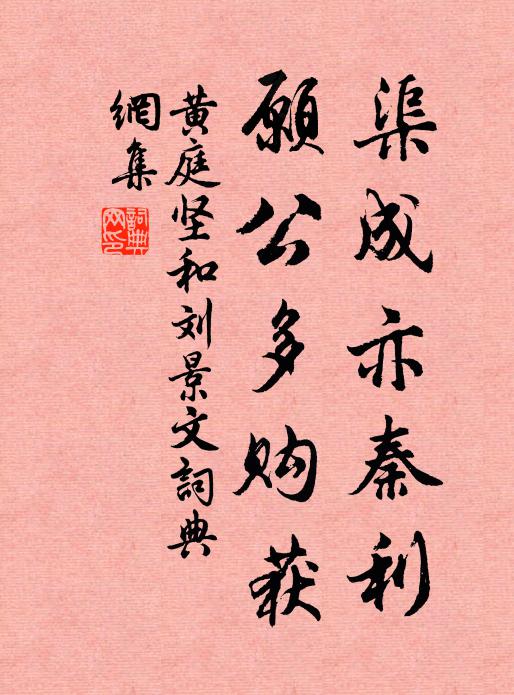 渠成亦秦利
願公多购获
黄庭坚和刘景文詞典
網集
詞典
网印